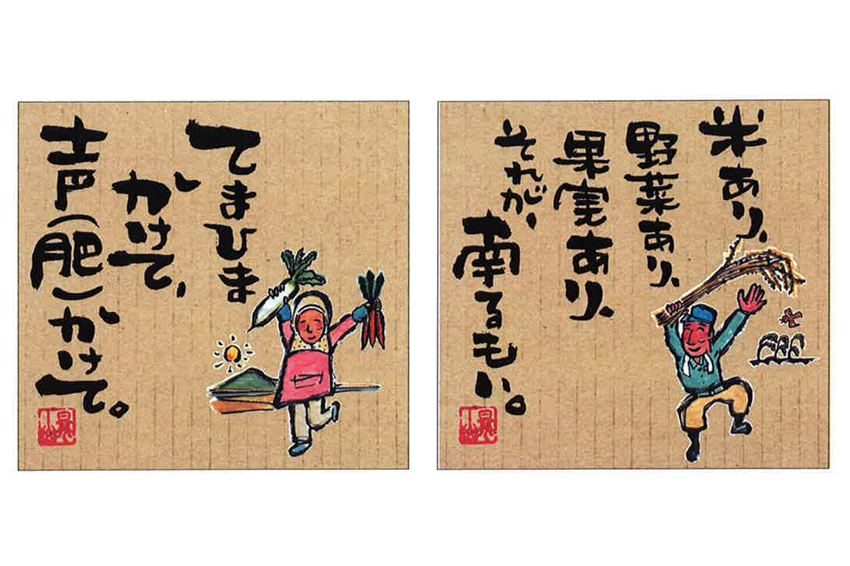 てまひま
かけて、
声(肥)かけて。
米あり、
野菜あり、
果実あり、
それが、
南るもい。